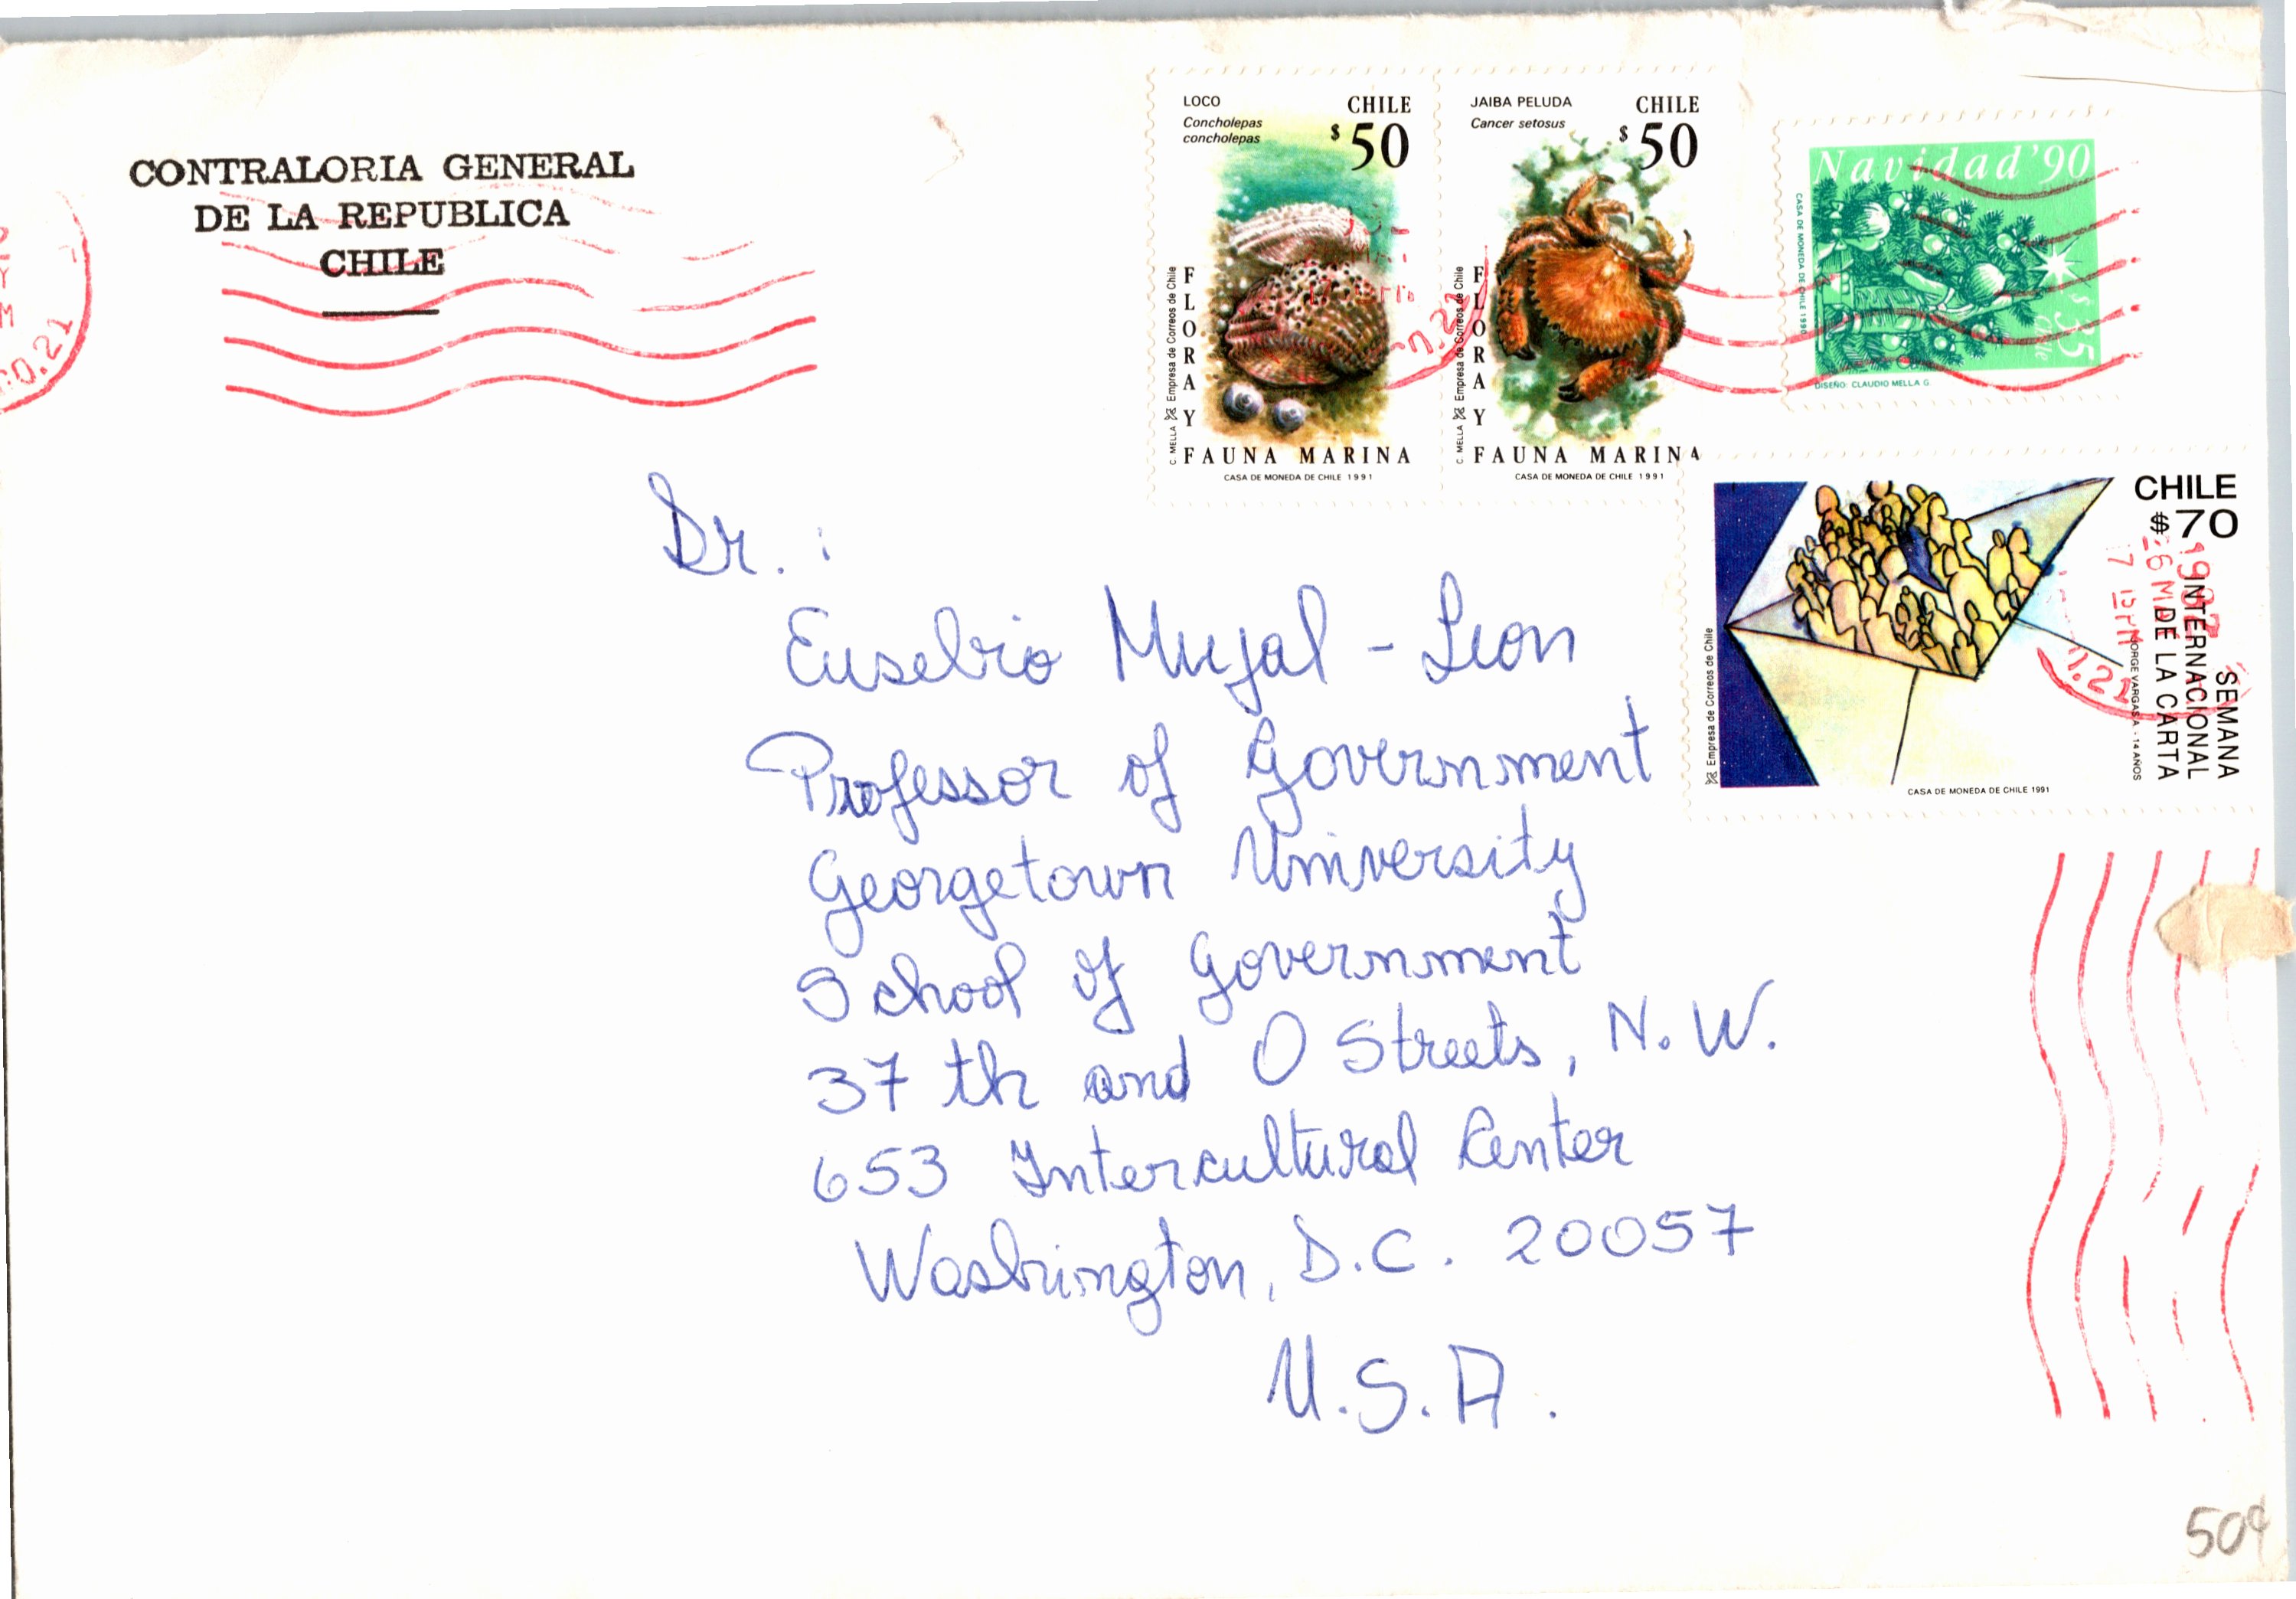 CONTRALORIA GENERAL
DE LA REPUBLICA
CHILE
LOCO
Concholepas
concholepas
CHILE
$50
FLORA Y
FAUNA MARINA
C. MELLA Empresa de Correos de Chile
CASA DE MONEDA DE CHILE 1991
JAIBA PELUDA
Cancer setosus
CHILE
$50
FLORA Y
FAUNA MARINA
C. MELLA Empresa de Correos de Chile
CASA DE MONEDA DE CHILE 1991
Navidad '90
CASA DE MONEDA DE CHILE 1990
DISEÑO: CLAUDIO MELLA G.
Chile
CHILE
$70
SEMANA
INTERNACIONAL
DE LA CARTA
JORGE VARGAS A. - 14 AÑOS
Empresa de Correos de Chile
CASA DE MONEDA DE CHILE 1991
Dr. :
Eusebio Mujal - Leon
Professor of Government
Georgetown University
School of Government
37 th and O Streets, N. W.
653 Intercultural Center
Washington, D.C. 20057
U.S.A.
50¢